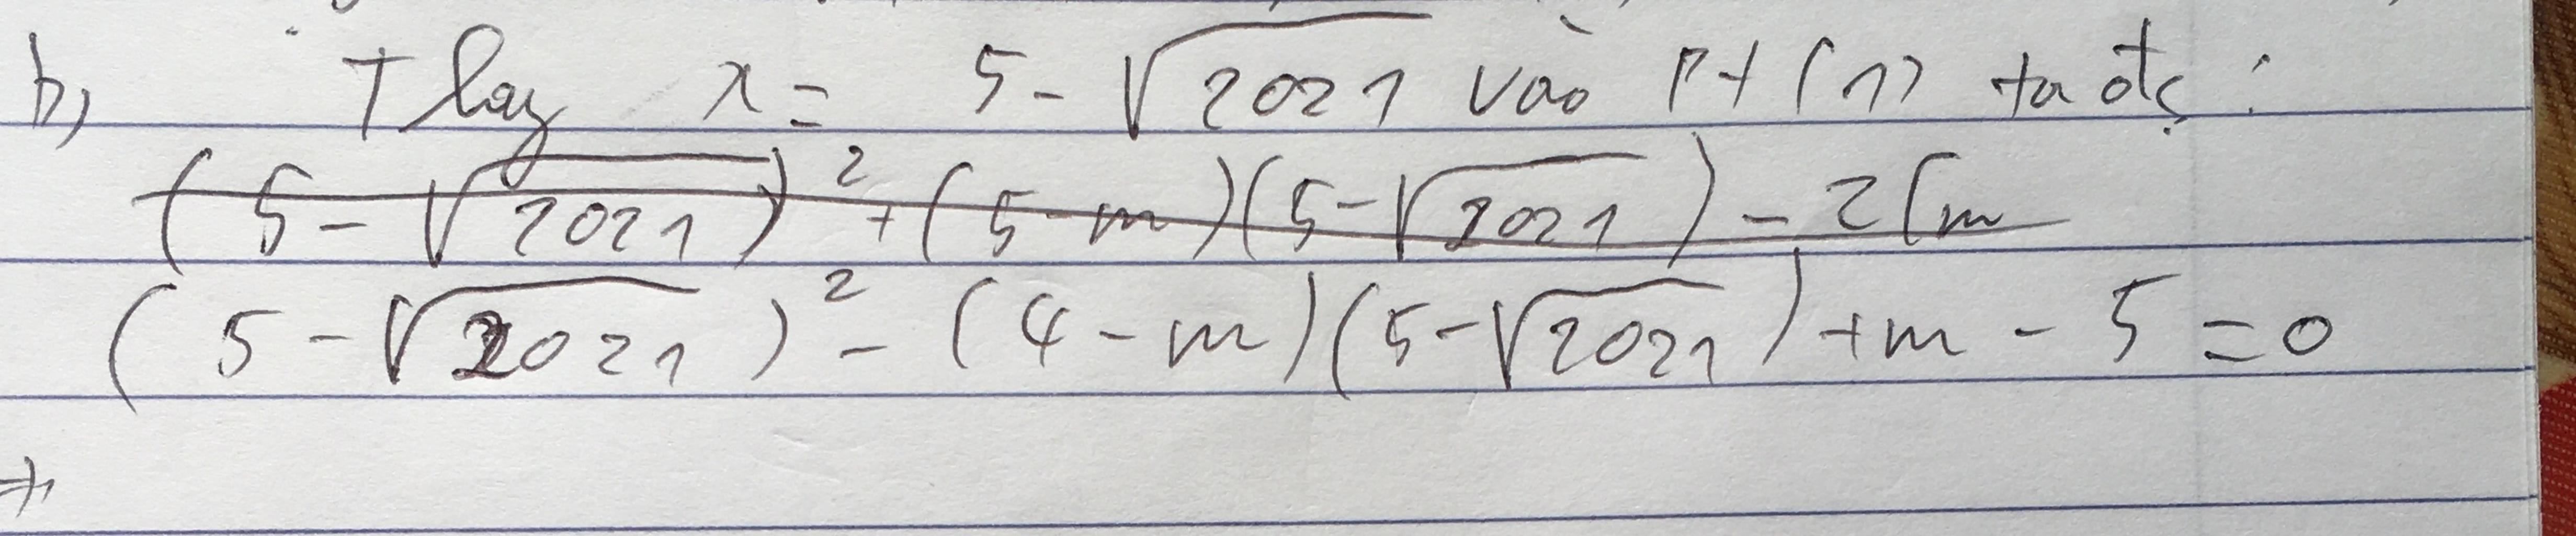 b) Thay x = 5 - √2021 vào Pt (1) ta đc :
(5 - √2021)² + (5 - m)(5 - √2021) - 2(m
(5 - √2021)² - (4 - m)(5 - √2021) + m - 5 = 0